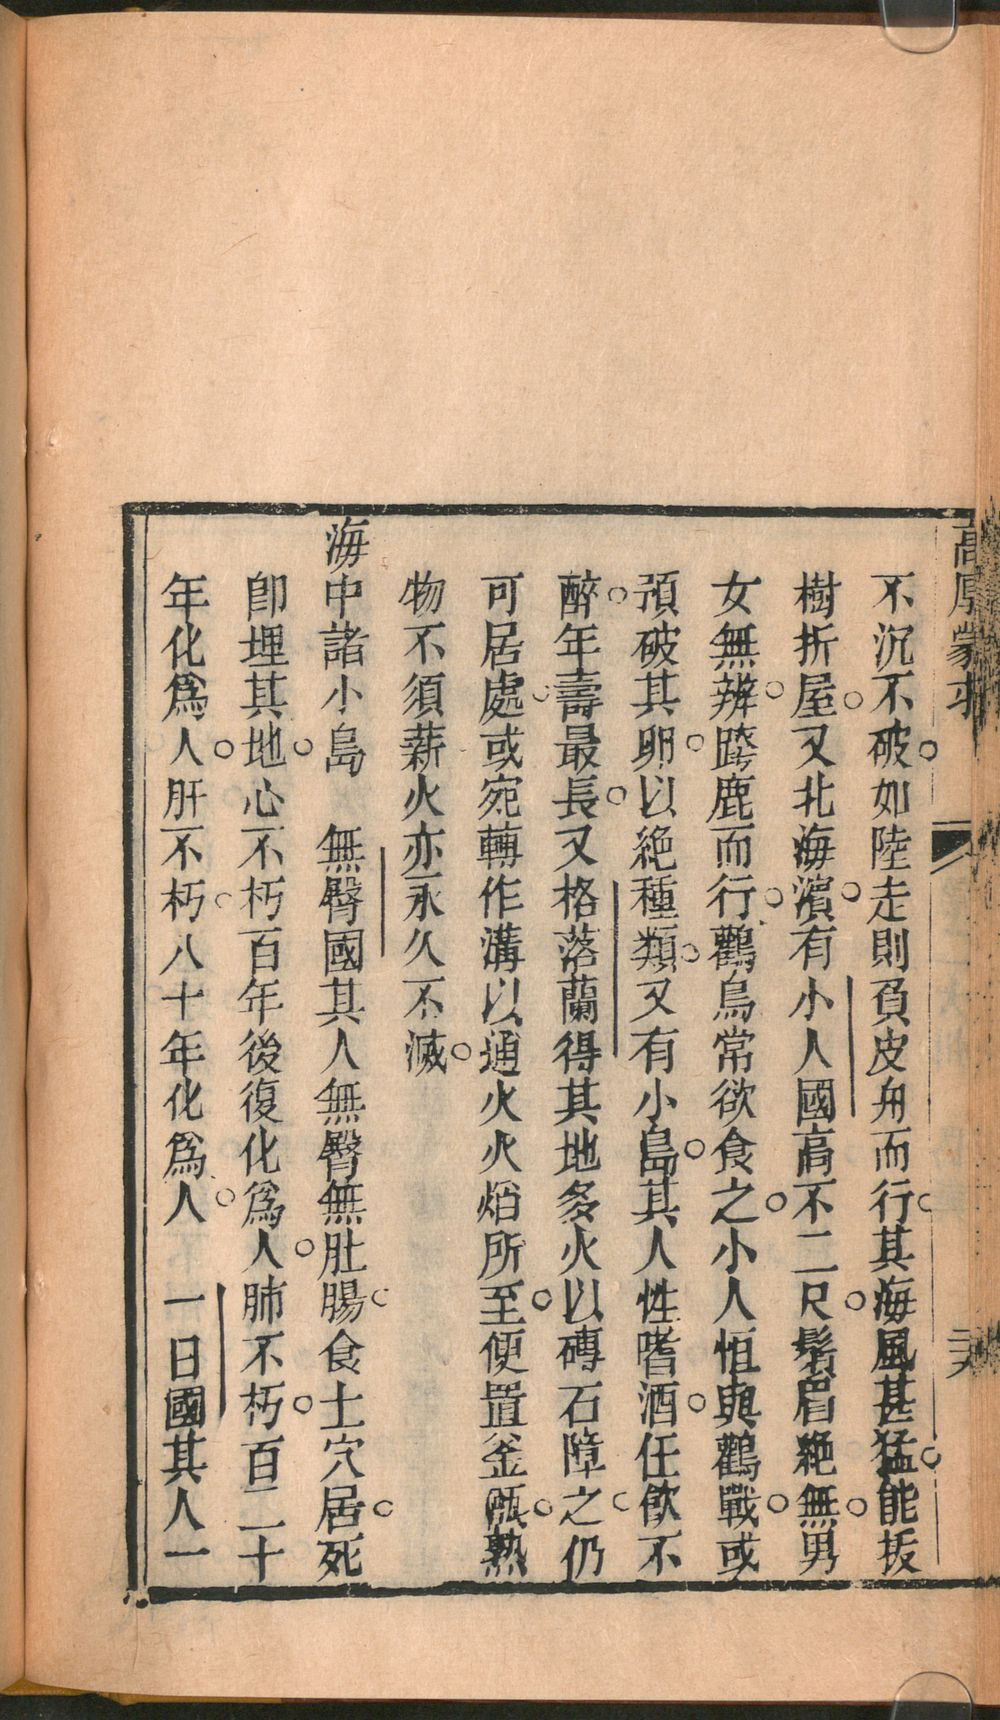 高厚蒙求
不沉不破如陸走則負皮舟而行其海風甚猛能拔
樹折屋又北海濵有小人國高不二尺鬚眉絶無男
女無辨跨鹿而行鸛鳥常欲食之小人恒與鸛戰或
預破其卵以絶種類又有小島其人性嗜酒任飲不
醉年壽最長又格落蘭得其地多火以磚石障之仍
可居處或宛轉作溝以通火火焰所至便置釜甑熟
物不須薪火亦永久不滅
海中諸小島 無臀國其人無臀無肚腸食土穴居死
卽埋其地心不朽百年後復化爲人肺不朽百二十
年化爲人肝不朽八十年化爲人 一日國其人一